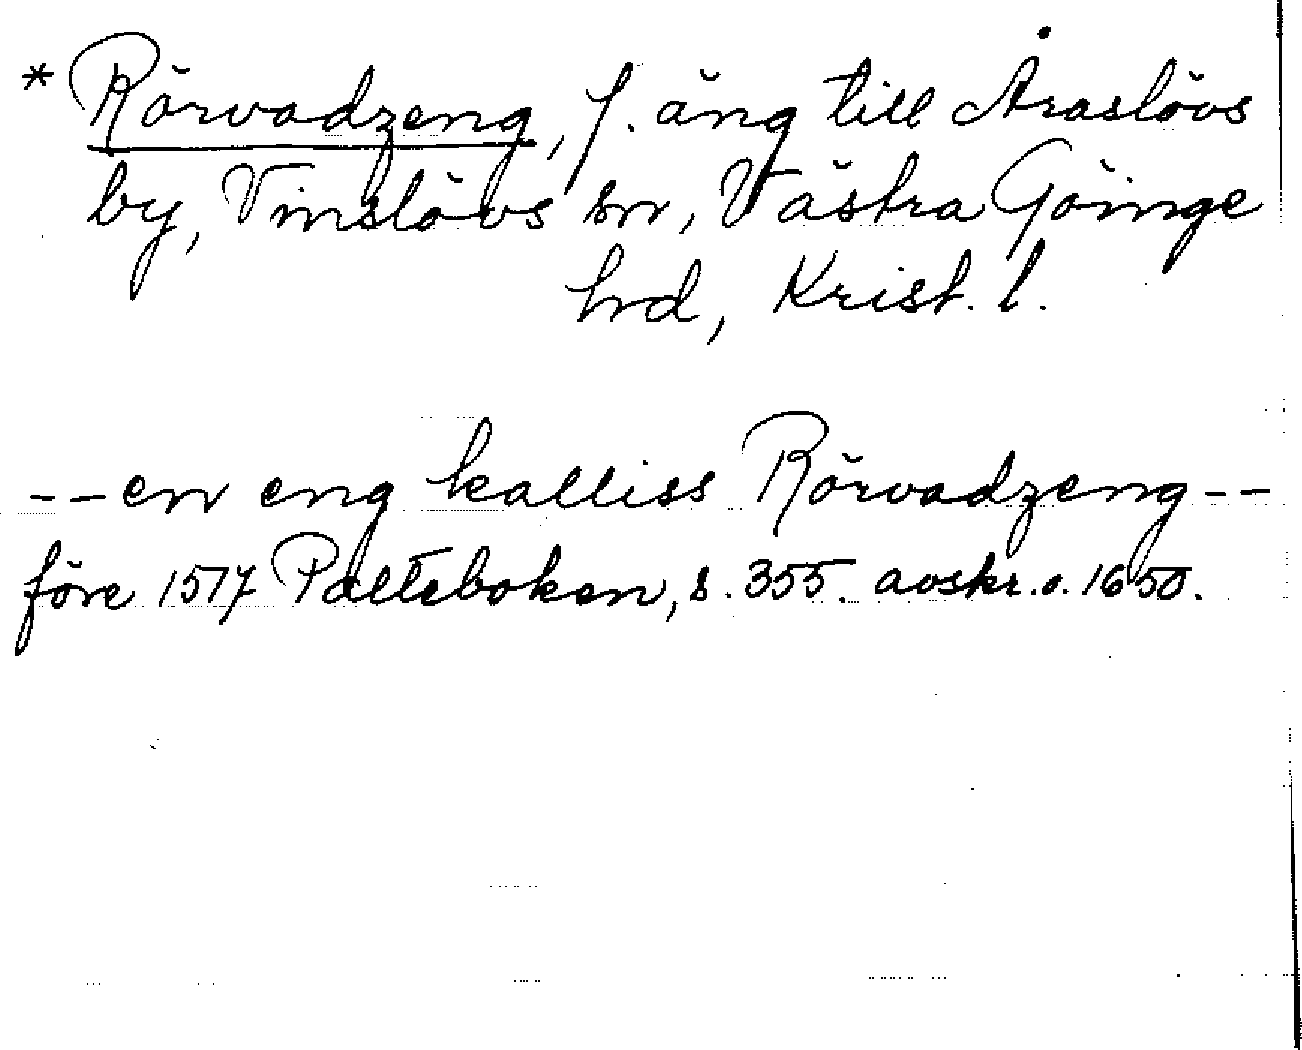 * Rörvadzeng, f. äng till Araslövs
by, Vinslövs sn, Västra Göinge
hrd, Krist. l.
--en eng kalliss Rörvadzeng--
före 1517 Palteboken, s. 355. avskr. o. 1650.